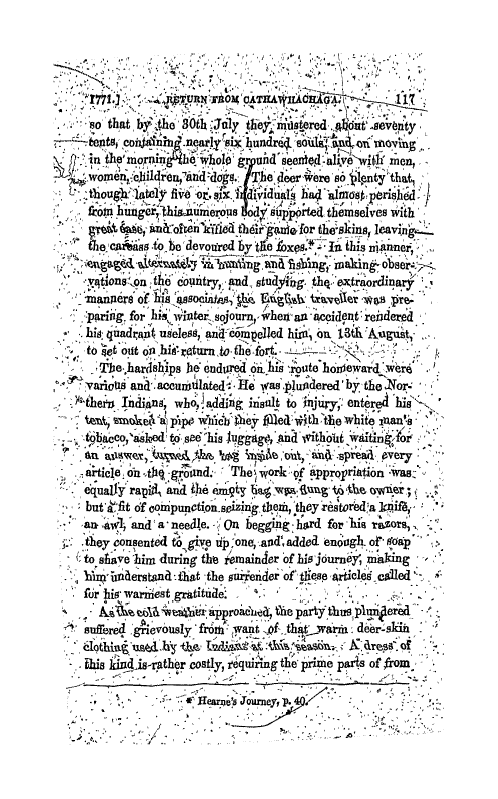 1771.] RETURN FROM CATHAWHACHAGA. 117
so that by the 30th July they mustered about seventy
tents, containing nearly six hundred souls; and on moving
in the morning the whole ground seemed alive with men,
women, children, and dogs. The deer were so plenty that,
though lately five or six individuals had almost perished
from hunger, this numerous body supported themselves with
great ease, and often killed their game for the skins, leaving
the carcass to be devoured by the foxes.* In this manner,
engaged alternately in hunting and fishing, making obser-
vations on the country, and studying the extraordinary
manners of his associates, the English traveller was pre-
paring for his winter sojourn, when an accident rendered
his quadrant useless, and compelled him, on 13th August,
to set out on his return to the fort.
The hardships he endured on his route homeward were
various and accumulated. He was plundered by the Nor-
thern Indians, who, adding insult to injury, entered his
tent, smoked a pipe which they filled with the white man's
tobacco, asked to see his luggage, and without waiting for
an answer, turned the bag inside out, and spread every
article on the ground. The work of appropriation was
equally rapid, and the empty bag was flung to the owner;
but a fit of compunction seizing them, they restored a knife,
an awl, and a needle. On begging hard for his razors,
they consented to give up one, and added enough of soap
to shave him during the remainder of his journey, making
him understand that the surrender of these articles called
for his warmest gratitude.
As the cold weather approached, the party thus plundered
suffered grievously from want of that warm deer-skin
clothing used by the Indians at this season. A dress of
this kind is rather costly, requiring the prime parts of from
* Hearne's Journey, p. 40.